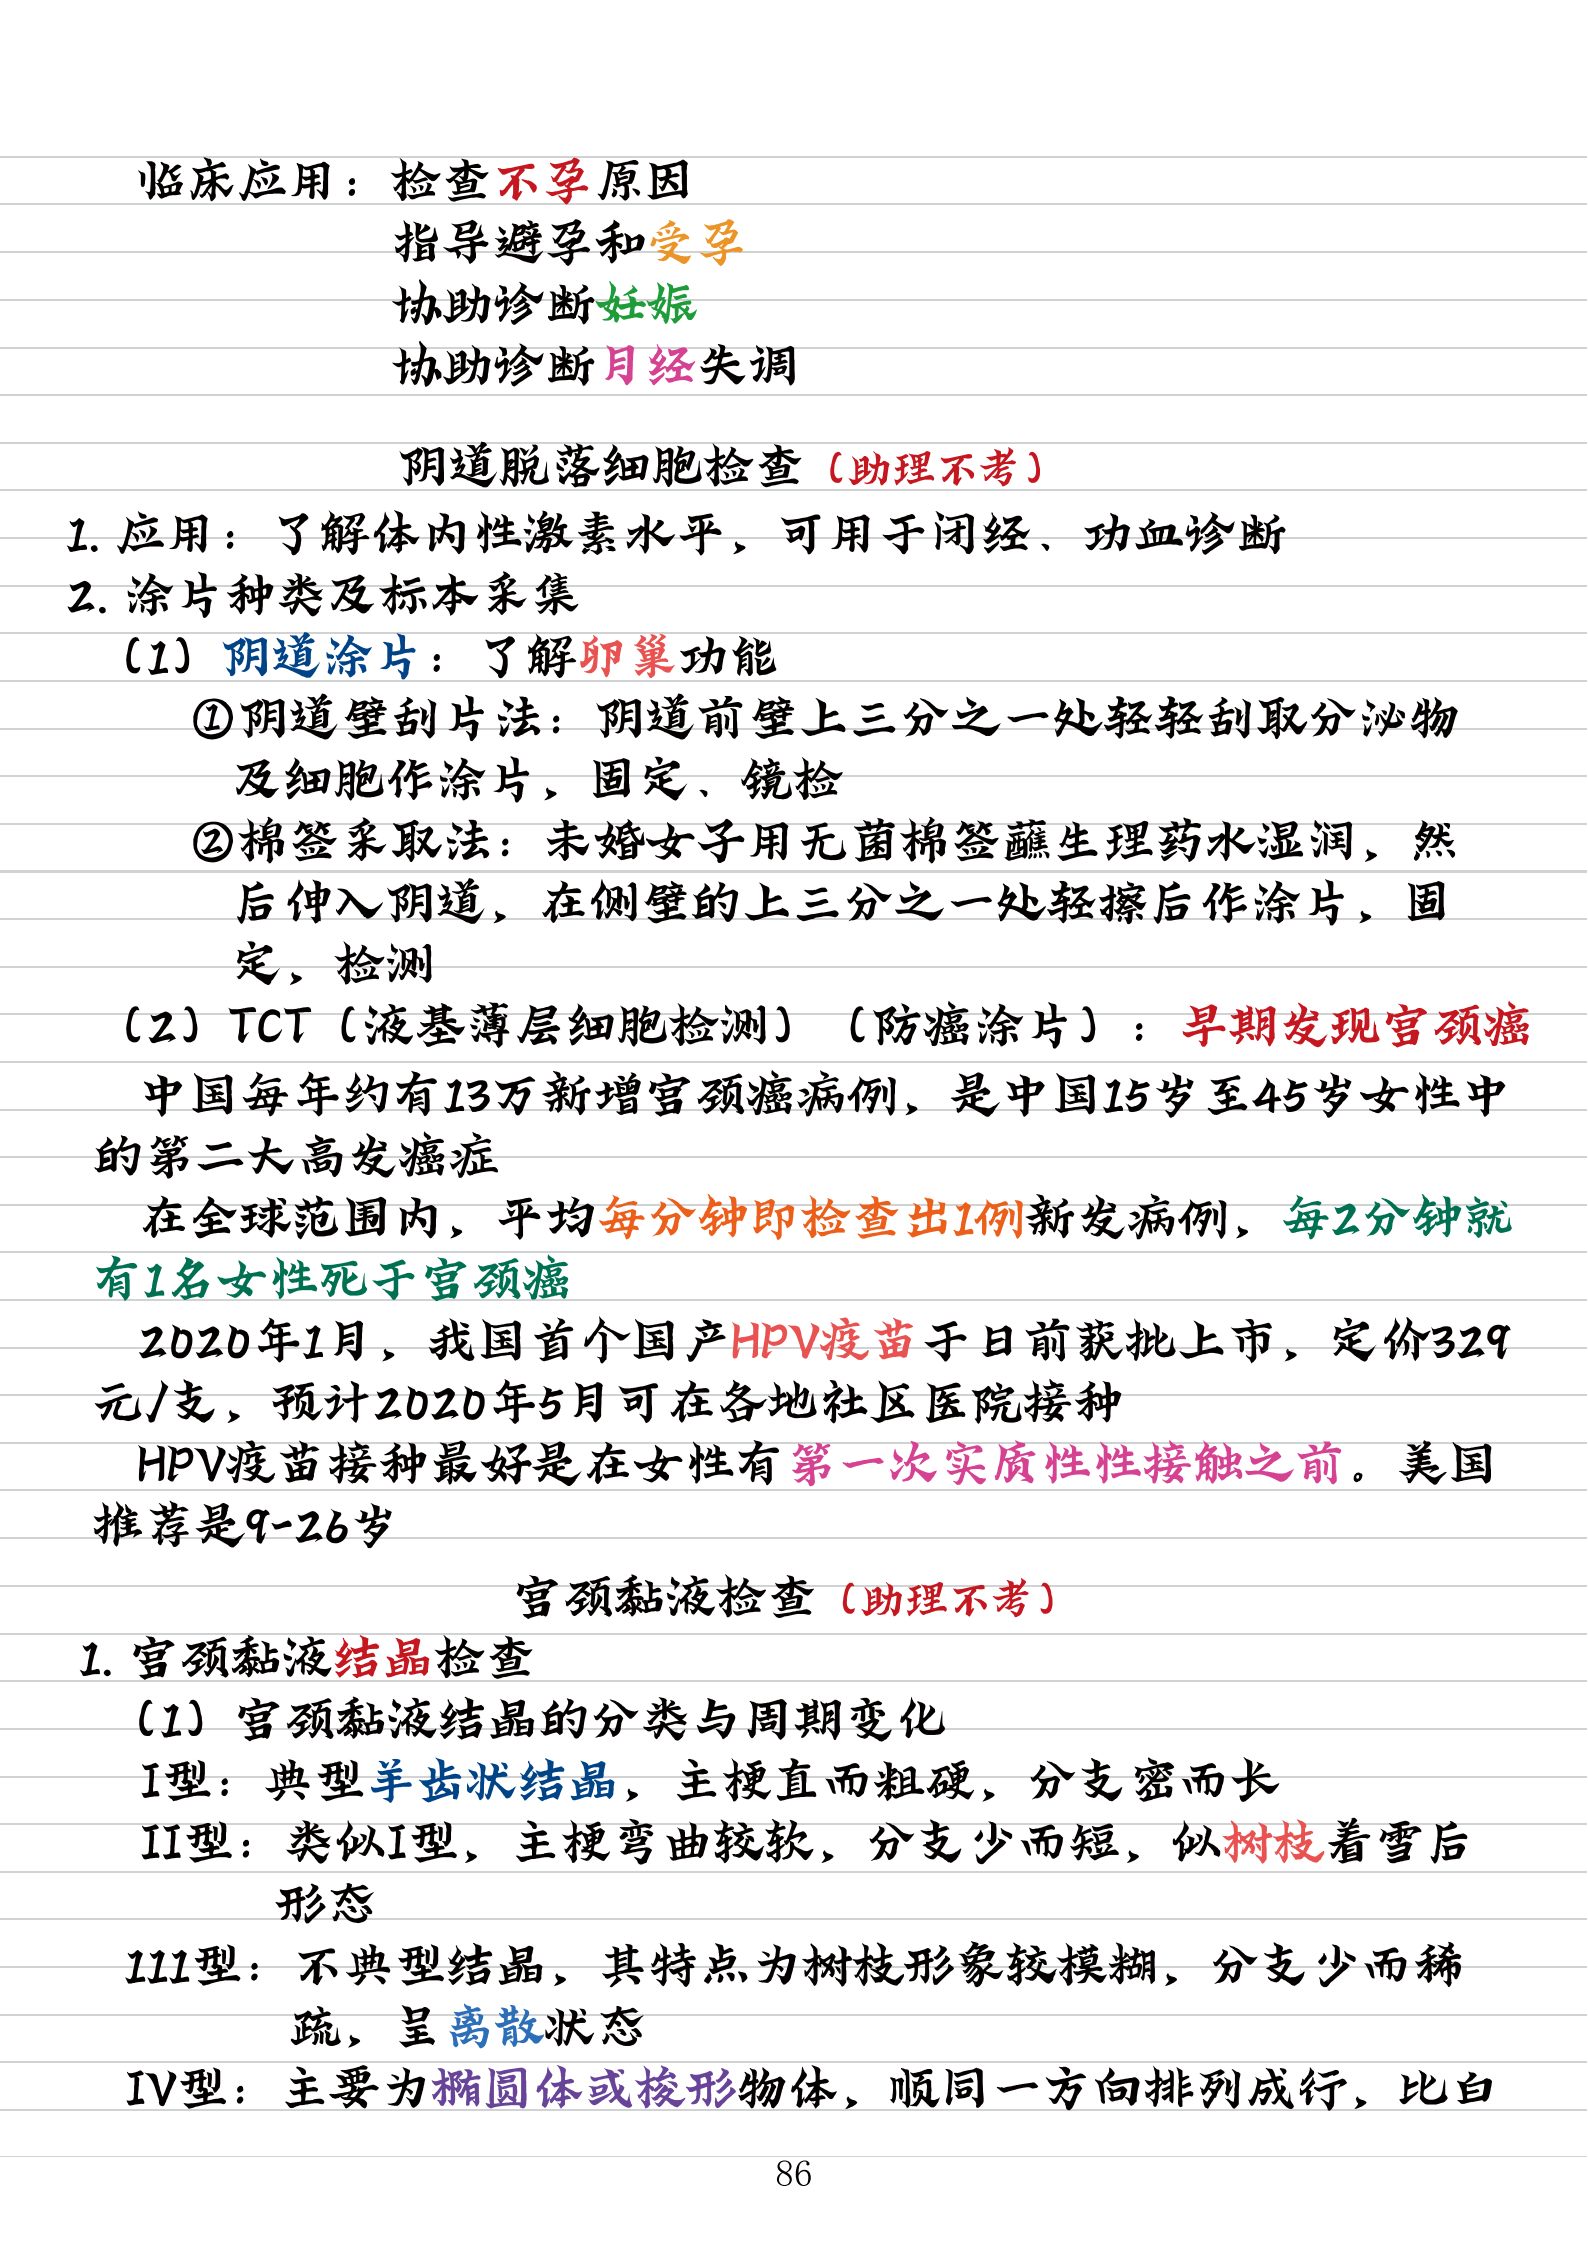 临床应用：检查不孕原因
指导避孕和受孕
协助诊断妊娠
协助诊断月经失调
阴道脱落细胞检查（助理不考）
1. 应用：了解体内性激素水平，可用于闭经、功血诊断
2. 涂片种类及标本采集
（1）阴道涂片：了解卵巢功能
①阴道壁刮片法：阴道前壁上三分之一处轻轻刮取分泌物
及细胞作涂片，固定、镜检
②棉签采取法：未婚女子用无菌棉签蘸生理药水湿润，然
后伸入阴道，在侧壁的上三分之一处轻擦后作涂片，固
定，检测
（2）TCT（液基薄层细胞检测）（防癌涂片）：早期发现宫颈癌
中国每年约有13万新增宫颈癌病例，是中国15岁至45岁女性中
的第二大高发癌症
在全球范围内，平均每分钟即检查出1例新发病例，每2分钟就
有1名女性死于宫颈癌
2020年1月，我国首个国产HPV疫苗于日前获批上市，定价329
元/支，预计2020年5月可在各地社区医院接种
HPV疫苗接种最好是在女性有第一次实质性性接触之前。美国
推荐是9-26岁
宫颈黏液检查（助理不考）
1. 宫颈黏液结晶检查
（1）宫颈黏液结晶的分类与周期变化
I型：典型羊齿状结晶，主梗直而粗硬，分支密而长
II型：类似I型，主梗弯曲较软，分支少而短，似树枝着雪后
形态
111型：不典型结晶，其特点为树枝形象较模糊，分支少而稀
疏，呈离散状态
IV型：主要为椭圆体或梭形物体，顺同一方向排列成行，比白
86